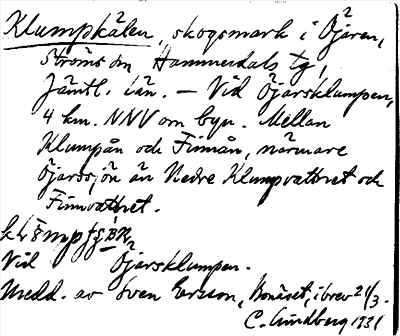 Klumpkälen, skogsmark i Öjåren,
Ströms sn Hammerdals tg,
Jämtl. län. – Vid Öjarsklumpen,
4 km. NNV om byn. Mellan
Klumpån och Finnån, närmare
Öjarssjön än Nedre Klumpvattnet och
Finnvattnet.
Vid Öjarsklumpen.
Medd. av Sven Ersson, Bonäset, i brev 21/3.
C. Lindberg 1931